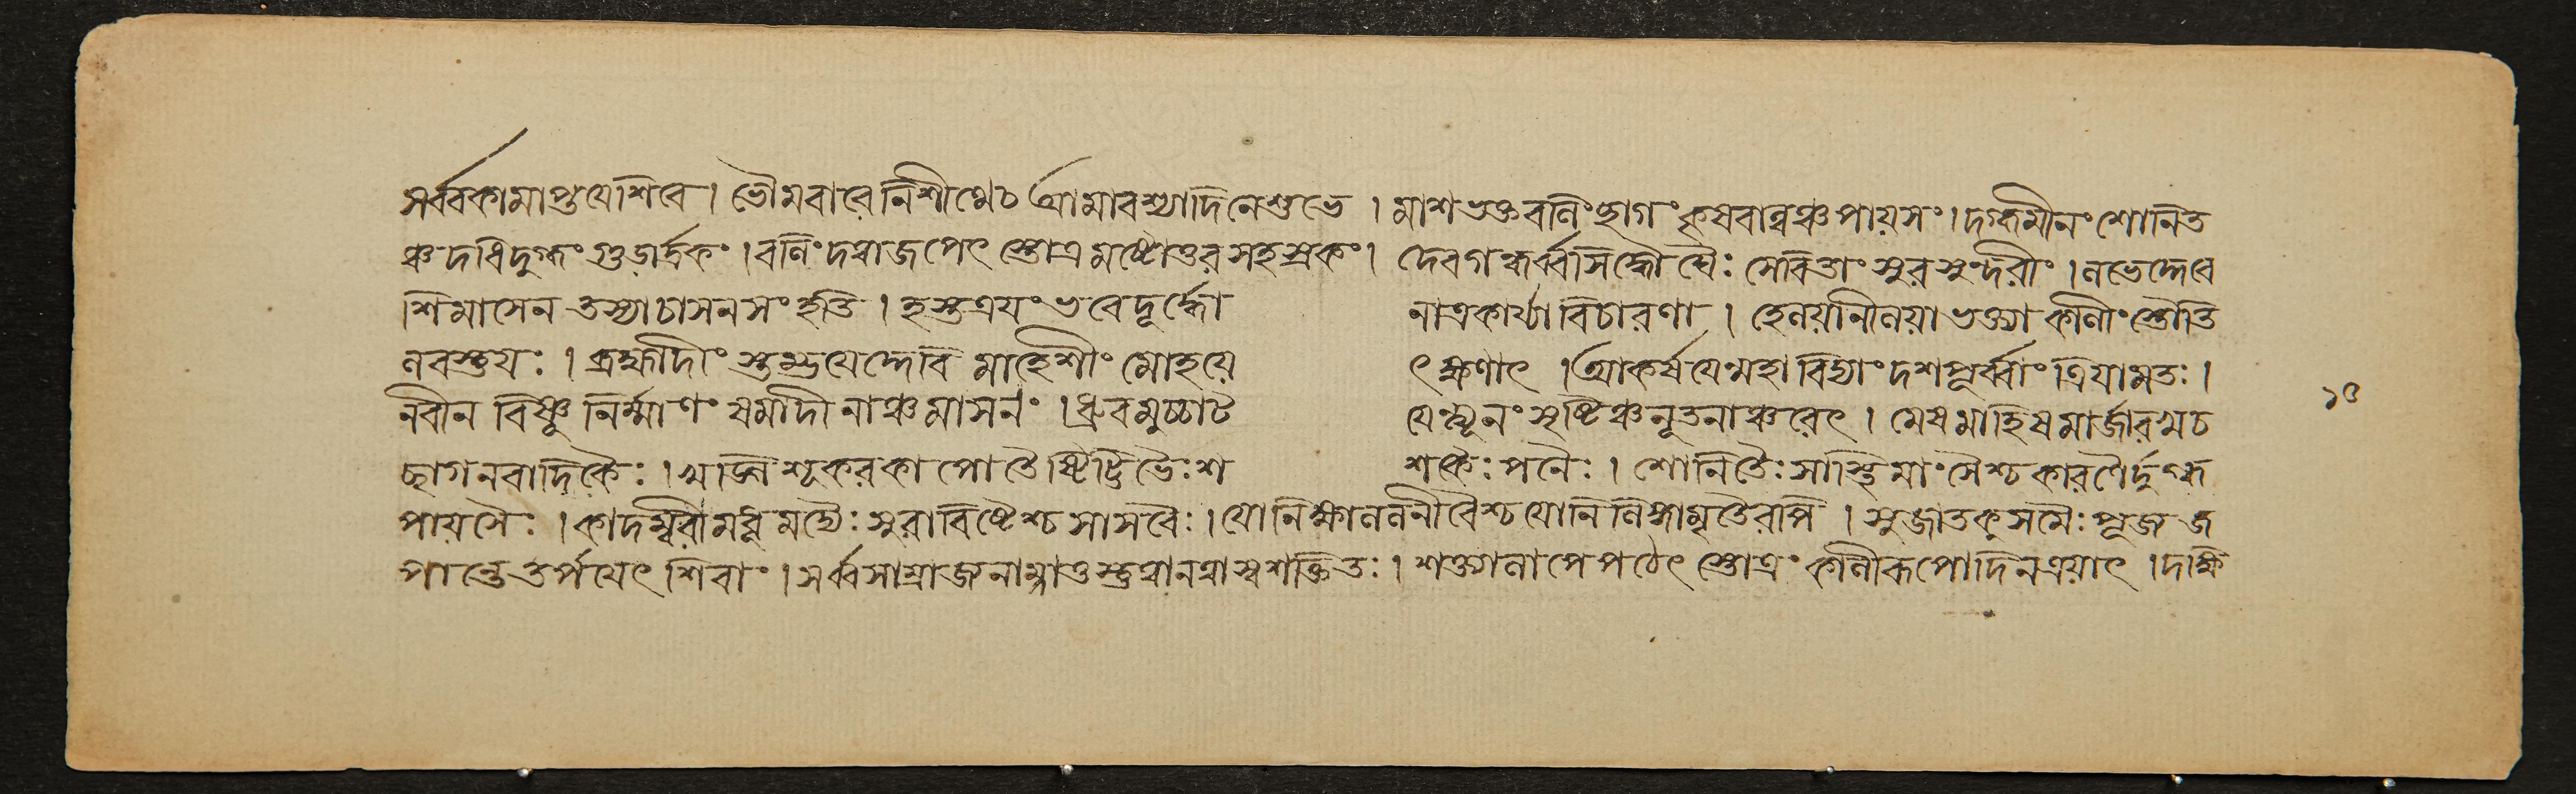 সর্ব্বকামাপ্তয়েশিবে । ভৌমবারেনিশীথেচ আমাবশ্যাদিনেশুভে । মাশভক্তবলিং ছাগং কৃসরান্নঞ্চপায়সং । দগ্ধমীনং শোনিত
ঞ্চদধিদুগ্ধং গুডার্দ্রকং । বলিং দত্বাজপেৎ স্তোত্রমষ্টোত্তরসহস্রকং । দেবগন্ধর্ব্বসিদ্ধৌঘৈঃ সেবিতাং সুরসুন্দরীং । লভেদ্দেবে
শিমাসেন তস্যাচাসনসংহতি । হস্তত্রয়ং ভবেদূর্দ্ধো নাত্রকার্য্যাবিচারণা । হেলয়ালীলয়াভক্ত্যা কালীং স্তৌতি
নবস্তুয়ঃ । ব্রহ্মাদীং স্তম্ভয়েদ্দেবি মাহেশীং মোহয়ে ৎক্ষণাৎ । আকর্ষয়েন্মহাবিদ্যাং দশপূর্ব্বাং ত্রিয়ামতঃ ।
নবীন বিষ্ণু নির্ম্মাণং যমাদীনাঞ্চমাসনং । ধ্রুবমুচ্চাট য়েন্নূনং সৃষ্টিঞ্চনূতনাঞ্চরেৎ । মেষমাহিষমার্জারখচ
ছাগনরাদিকৈঃ । খড্গিশূকরকাপোতৈষ্টিট্টিভৈঃ শ শকৈঃ পলৈঃ । শোনিতৈঃ সাস্থিমাংসৈশ্চকারণ্ডৈর্দুগ্ধ
পায়সৈঃ । কাদম্বরীমধুমদ্যৈঃ সুরাবিষ্টৈশ্চসাসবৈঃ । যোনিক্ষালনতৈশ্চযোনিলিঙ্গামৃতৈরপি । সুজাতকুসুমৈঃ পূজজ
পান্তেতর্পয়েৎ শিবাং । সর্ব্বসাম্রাজ্যনাম্নাতুস্তুত্বানত্বাস্বশক্তিতঃ । শক্ত্যালাপেপঠেৎ স্তোত্রং কালীরূপোদিনত্রয়াৎ । দক্ষি
১৫